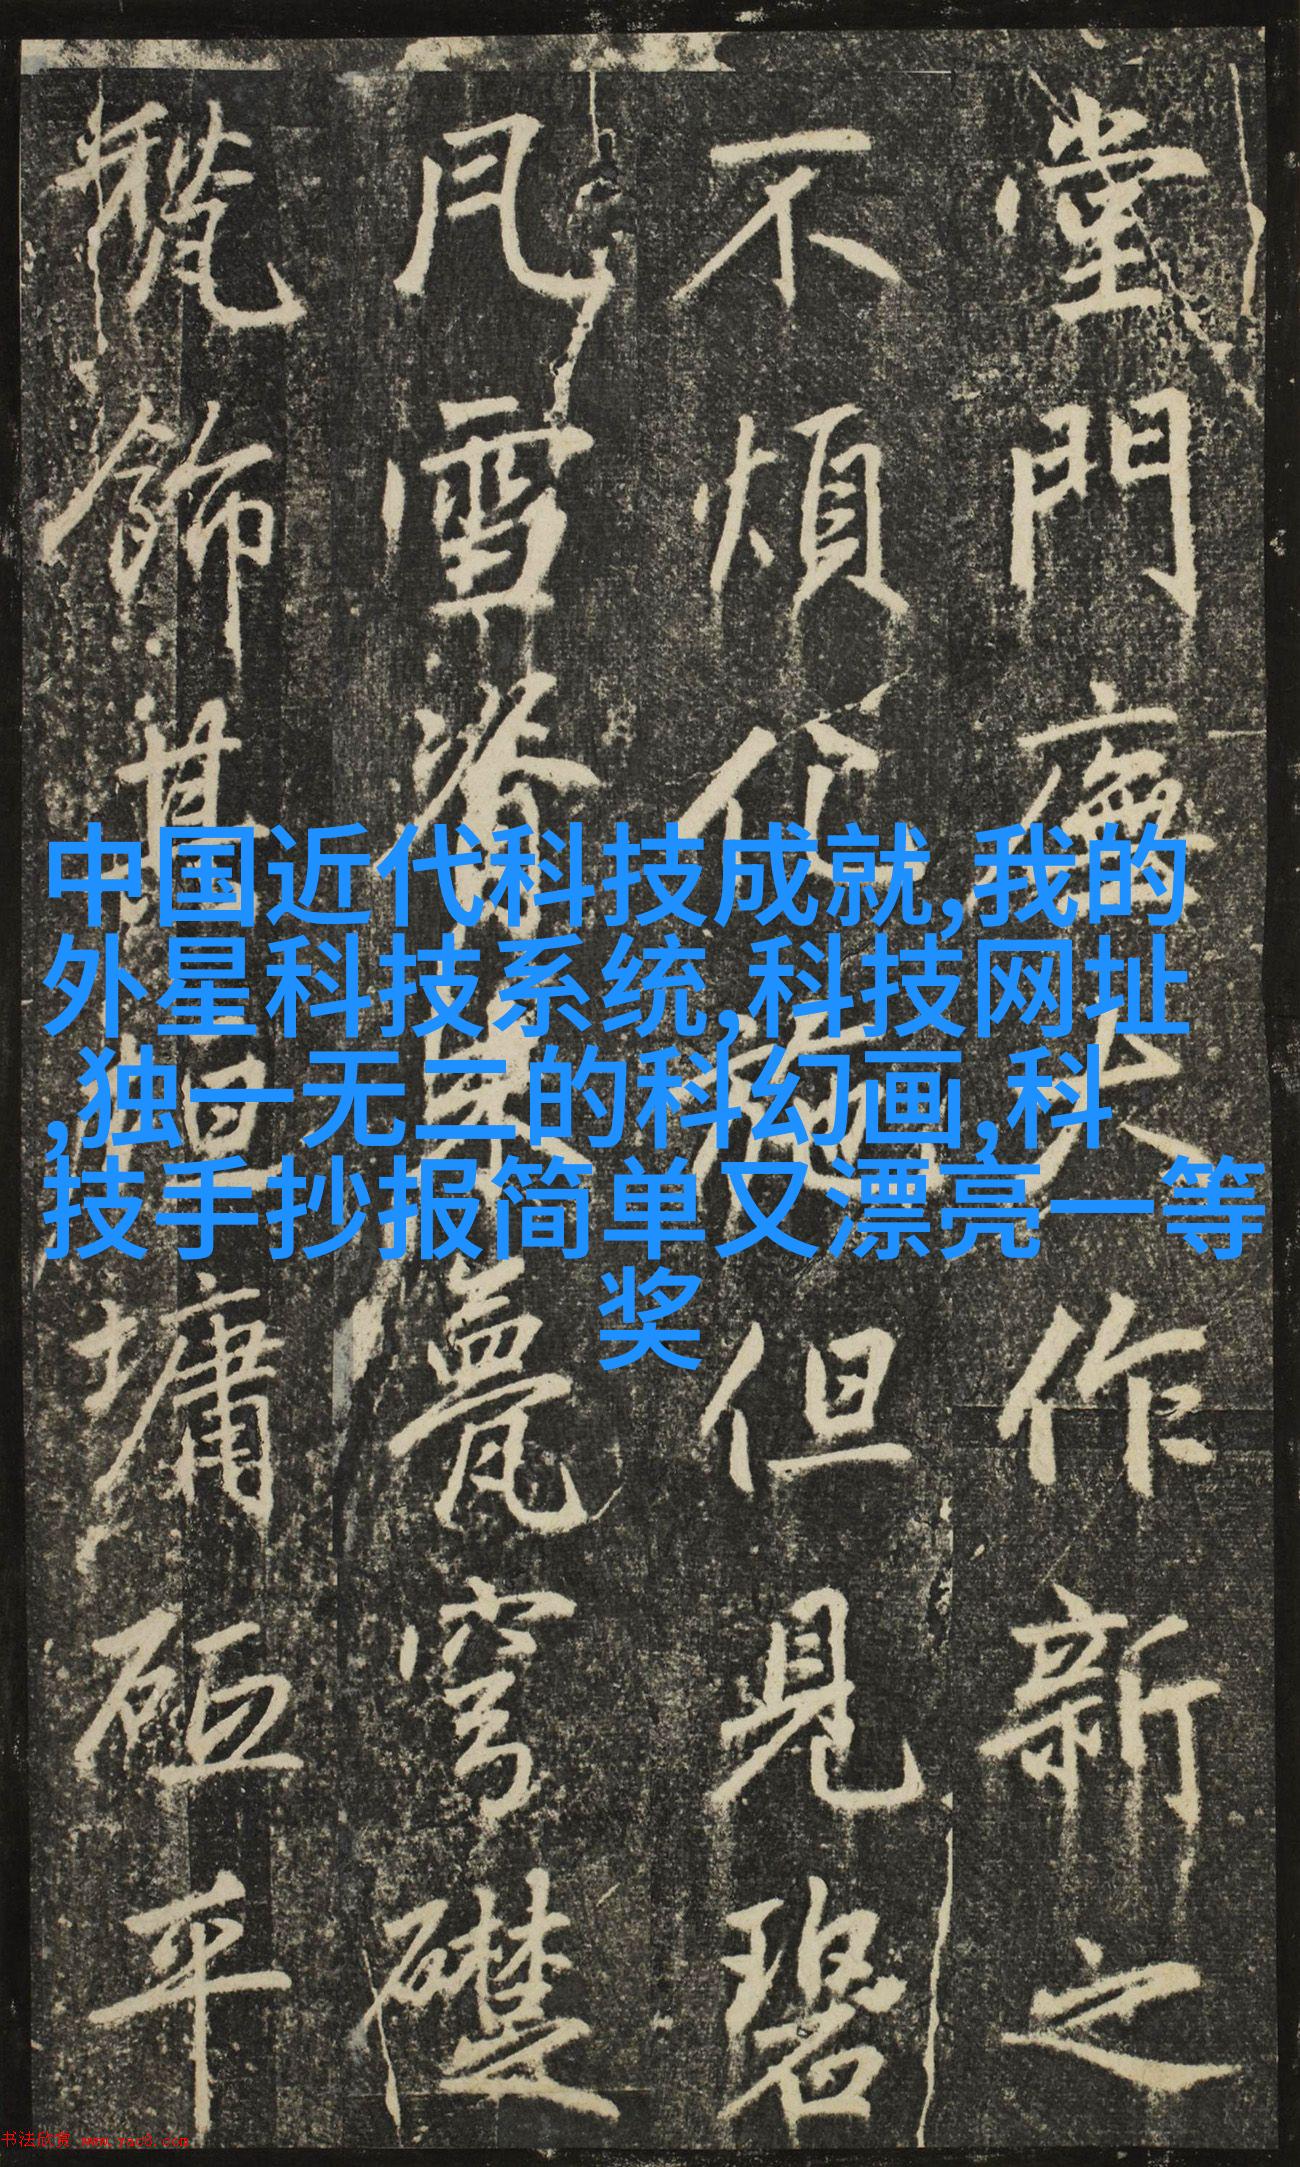 堂門廡大作新之
不煩但見碧
凡雪甍穹礎
飾其垣墉砠平
中国近代科技成就,我的
外星科技系统,科技网址
,独一无二的科幻画,科
技手抄报简单又漂亮一等
奖
书法欣赏 www.yac8.com